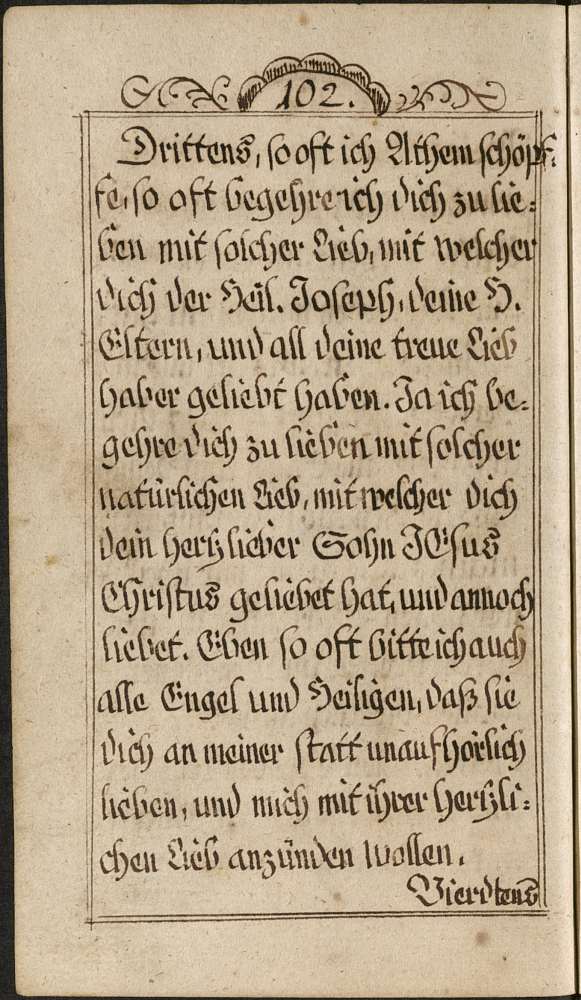 102.
Drittens, so oft ich Athem schöpf:
fe, so oft begehre ich dich zu lie:
ben mit solcher Lieb, mit welcher
dich der Heil. Joseph, deine H.
Eltern, und all deine treue Lieb
haber geliebt haben. Ja ich be:
gehre dich zu lieben mit solcher
natürlichen Lieb, mit welcher dich
dein hertzlieber Sohn JEsus
Christus geliebet hat, und annoch
liebet. Eben so oft bitte ich auch
alle Engel und Heiligen, daß sie
dich an meiner statt unaufhörlich
lieben, und mich mit ihrer hertzli:
chen Lieb anzünden wollen.
Vierdtens